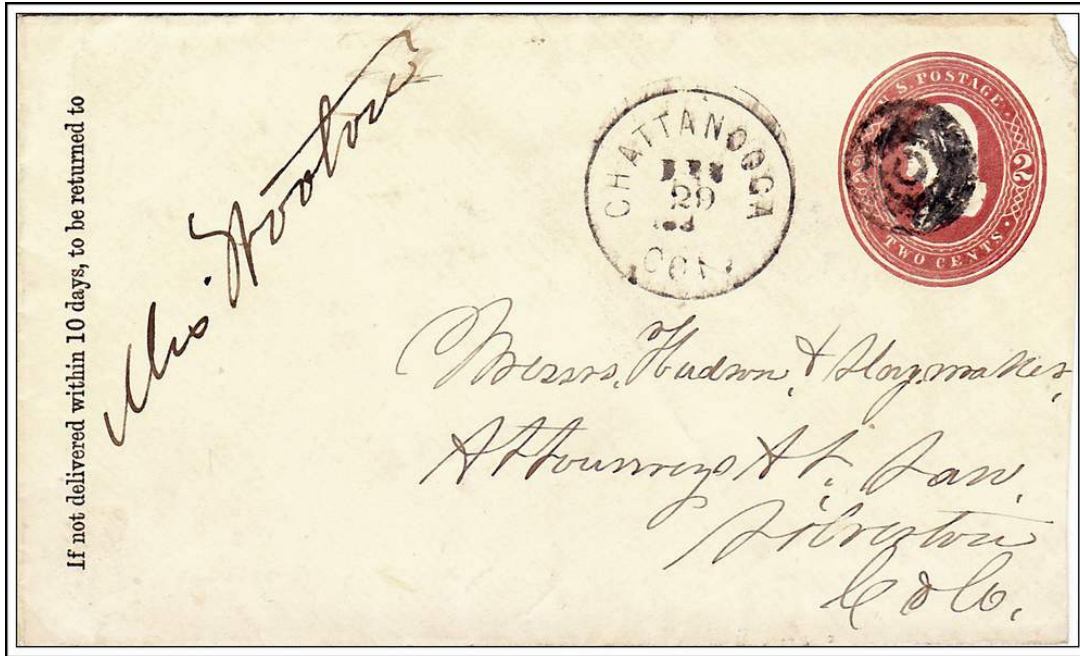 If not delivered within 10 days, to be returned to
CHATTANOOGA
29
COLO
U.S. POSTAGE
2 2
TWO CENTS
Messrs, Hudson, & Slaymaker,
Attourneys At, Law,
Silverton
Colo,